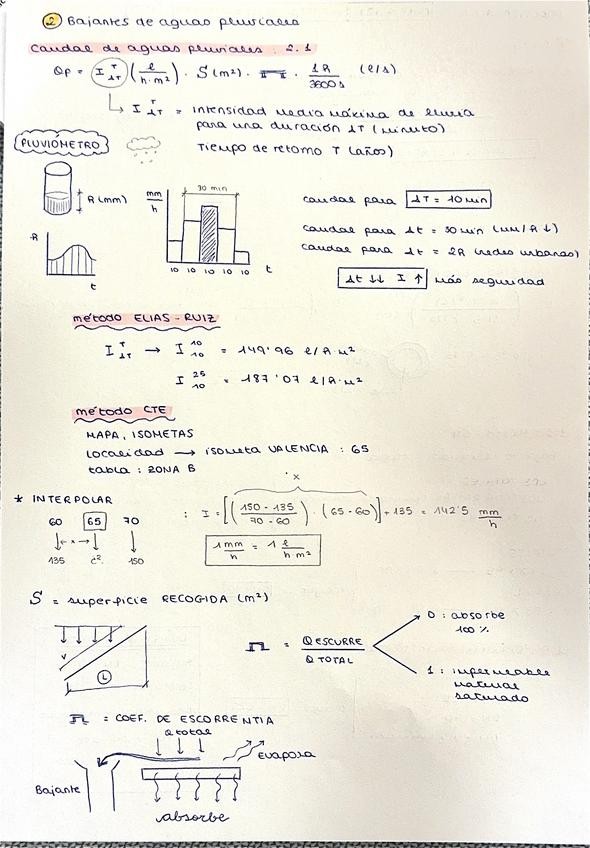 2 Bajantes de aguas pluviales
caudal de aguas pluviales : 2.1
Qp = I T ΔT ( l / h·m² ) · S (m²) · · 1h / 3600s (l/s)
I T ΔT = intensidad media máxima de lluvia
para una duración ΔT (minuto)
PLUVIÓMETRO
Tiempo de retorno T (años)
R (mm)
mm/h
30 min
10 10 10 10 10 t
R
t
caudal para ΔT = 10 min
caudal para Δt = 30 min (mm/h ↓)
caudal para Δt = 2h (redes urbanas)
Δt ↓↓ I ↑ más seguridad
método ELIAS - RUIZ
I T ΔT → I 10 10 = 149'96 l/h·m²
I 25 10 = 187'07 l/h·m²
método CTE
MAPA, ISOMETAS
localidad → isometa VALENCIA : 65
tabla : ZONA B
* INTERPOLAR
60 65 70
← x →
135 c? 150
x
: I = [( 150 - 135 / 70 - 60 ) · (65 - 60)] + 135 = 142'5 mm/h
1 mm/h = 1 l/h·m²
S = superficie RECOGIDA (m²)
V
L
= Q ESCURRE / Q TOTAL
0 : absorbe
100 %
1 : impermeable
material
saturado
= COEF. DE ESCORRENTIA
Q total
Evapora
Bajante
absorbe